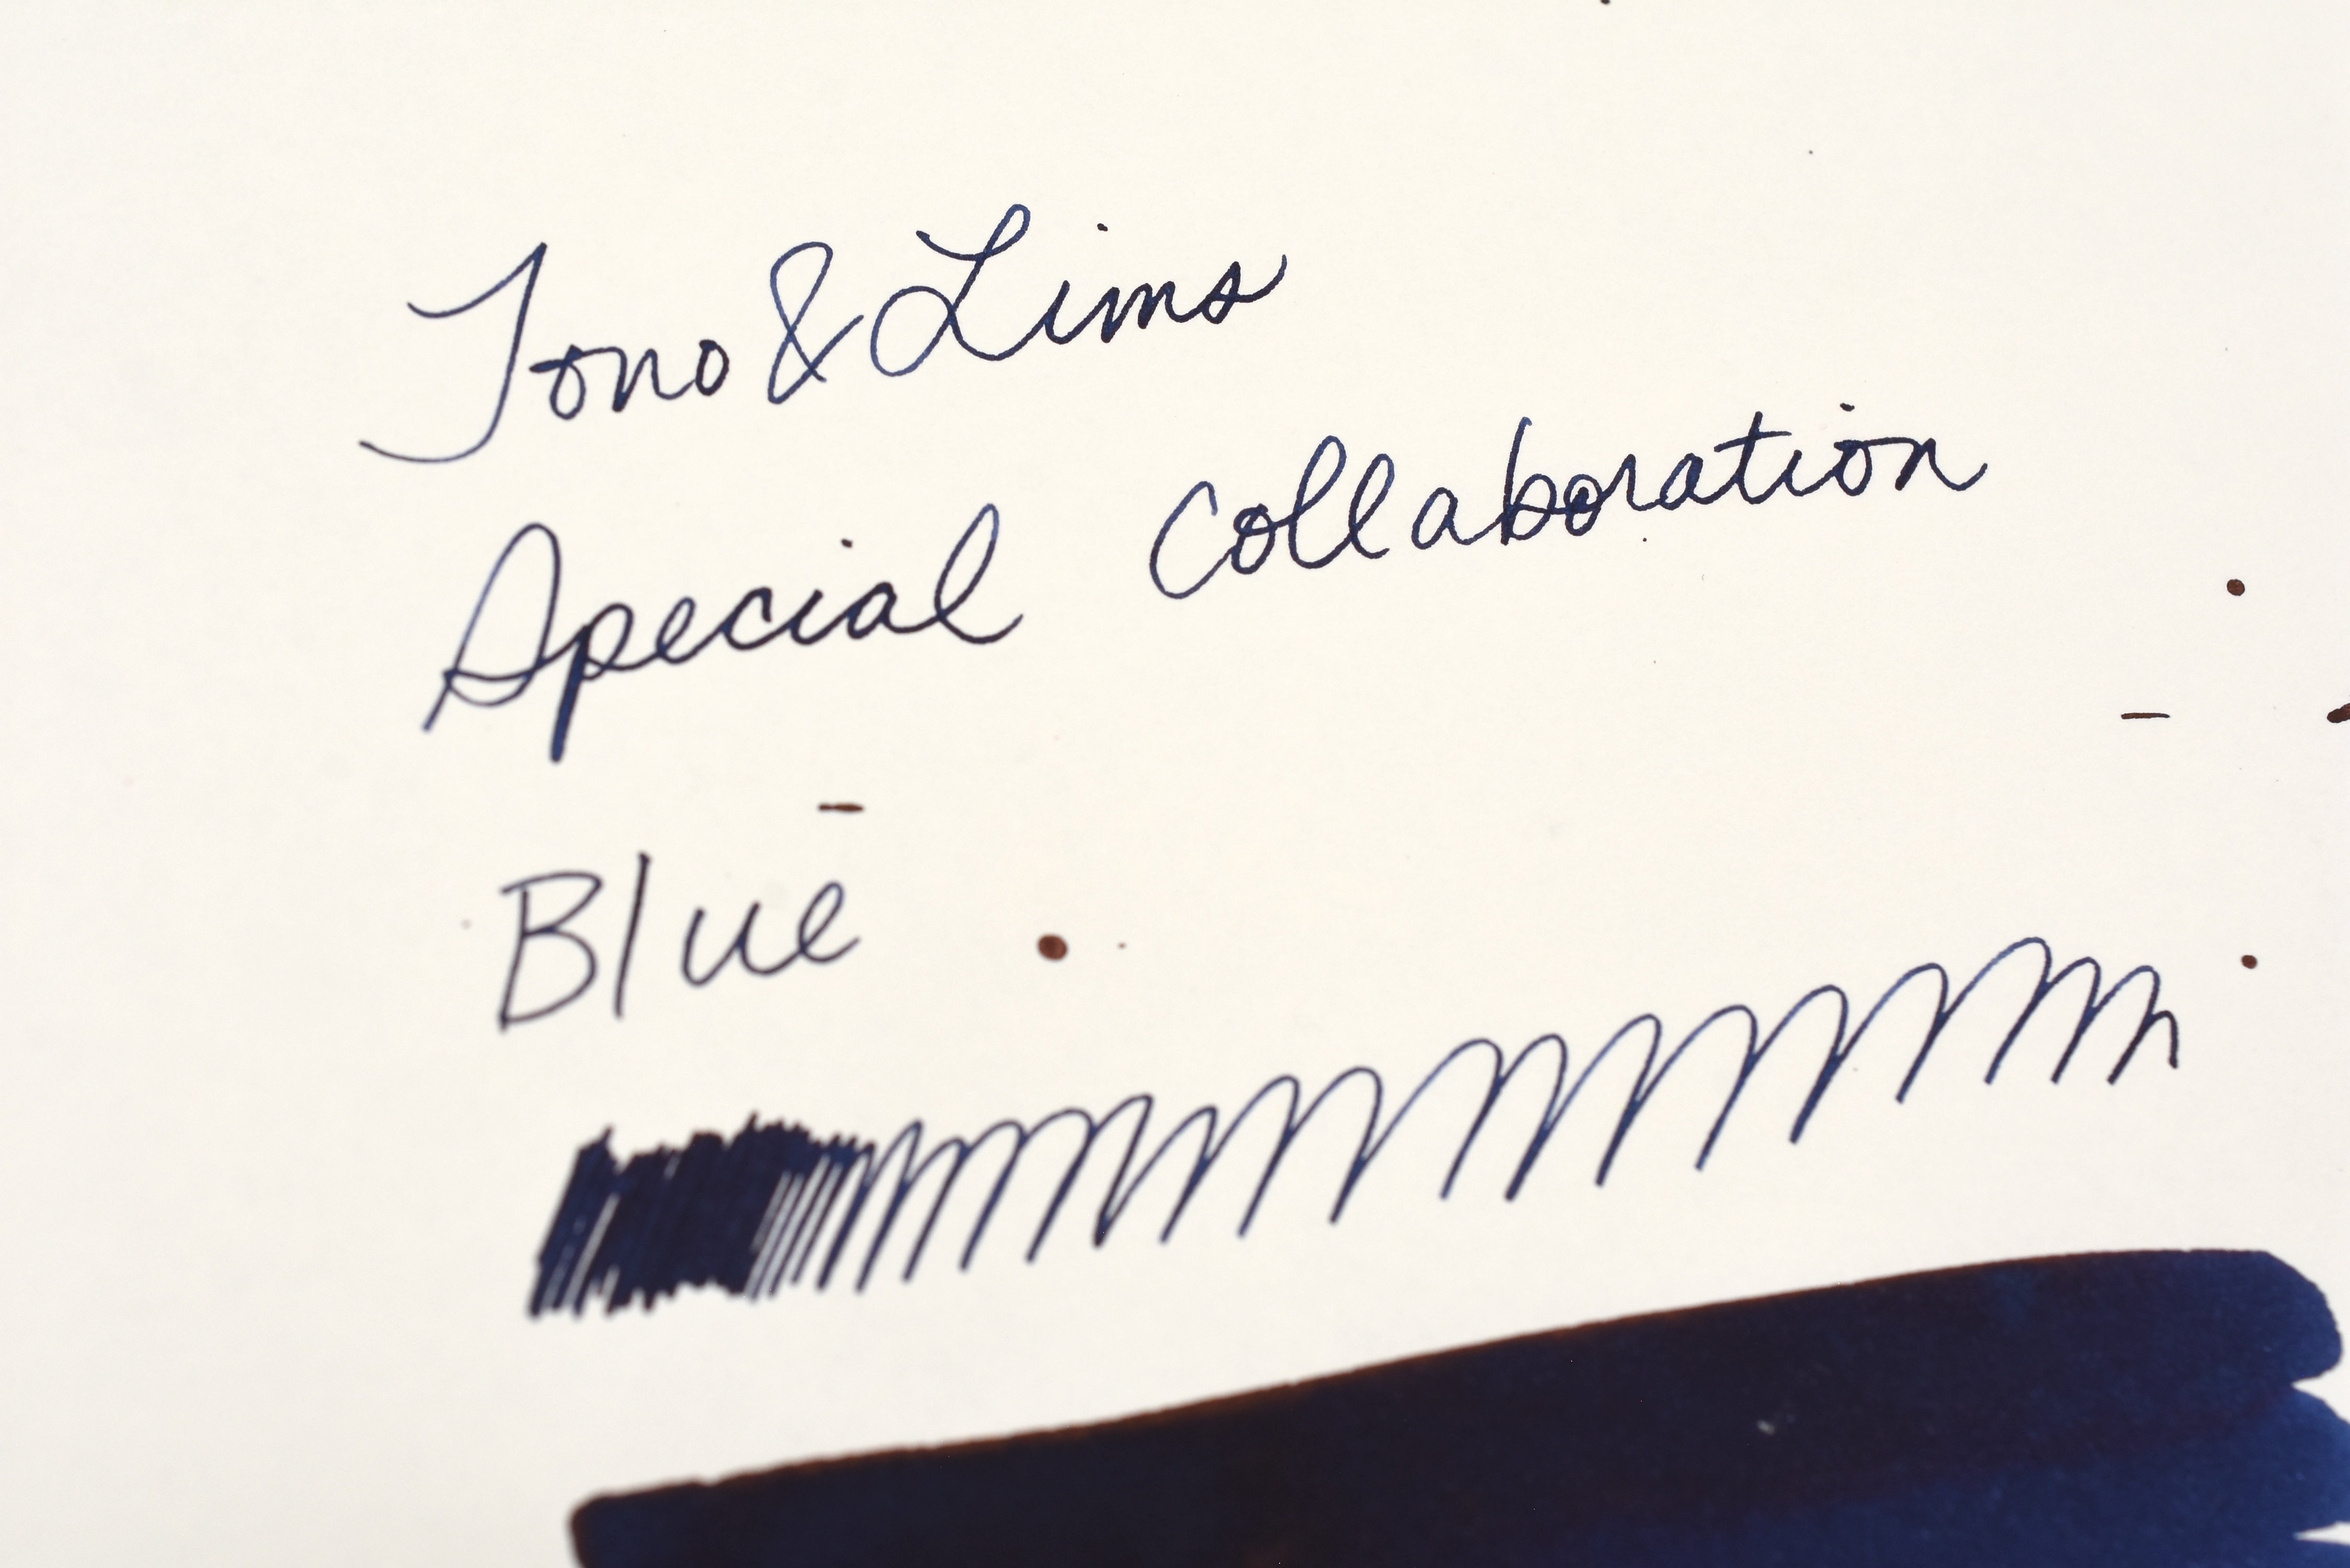 Tono & Lims
Special Collaboration
Blue